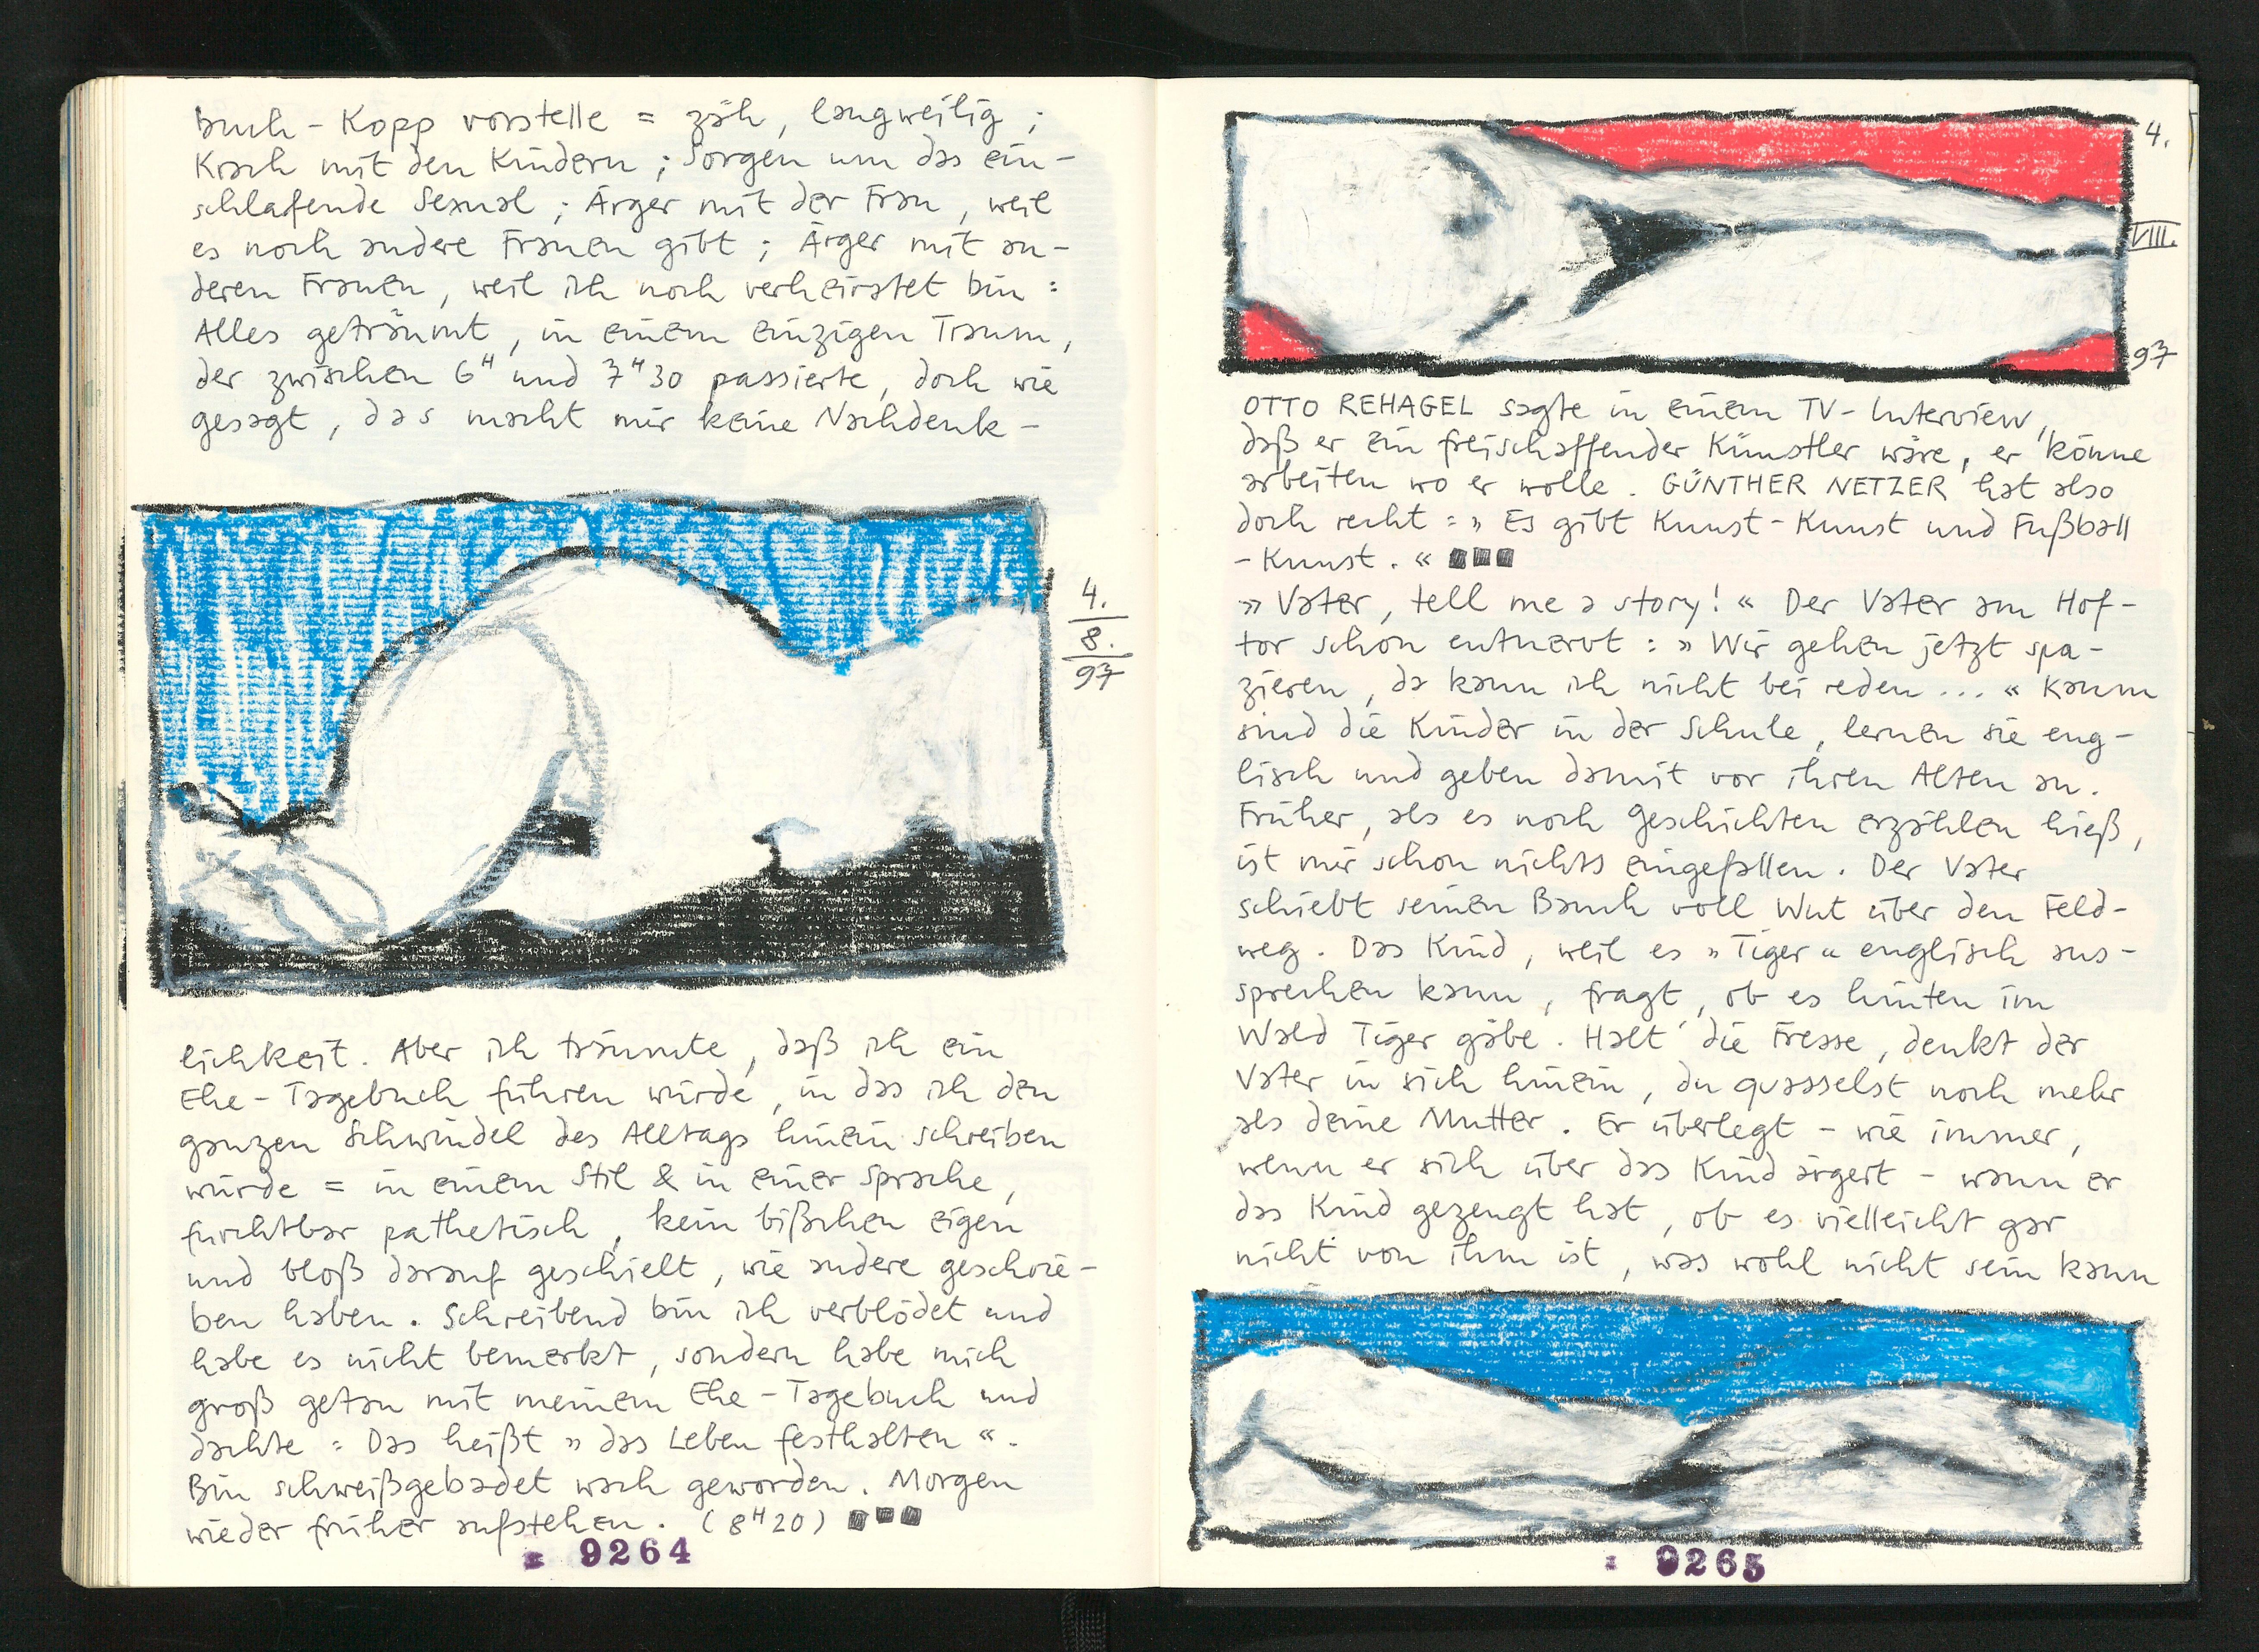 Buch-Kopp vorstelle = zäh, langweilig ;
Krach mit den Kindern ; Sorgen um das ein-
schlafende Sexual ; Ärger mit der Frau, weil
es noch andere Frauen gibt ; Ärger mit an-
deren Frauen, weil ich noch verheiratet bin :
Alles geträumt, in einem einzigen Traum,
der zwischen 6H und 7H30 passierte, doch wie
gesagt, das macht mir keine Nachdenk-
4.
8.
97
lichkeit. Aber ich träumte, daß ich ein
Ehe-Tagebuch führen würde, in das ich den
ganzen Schwindel des Alltags hinein schreiben
würde = in einem Stil & in einer Sprache,
furchtbar pathetisch, kein bißchen eigen
und bloß darauf geschielt, wie andere geschrie-
ben haben. Schreibend bin ich verblödet und
habe es nicht bemerkt, sondern habe mich
groß getan mit meinem Ehe-Tagebuch und
dachte : Das heißt » das Leben festhalten «.
Bin schweißgebadet wach geworden. Morgen
wieder früher aufstehen. (8H20) ■■■
9264
4.
VIII.
97
OTTO REHAGEL sagte in einem TV-Interview,
daß er ein freischaffender Künstler wäre, er könne
arbeiten wo er wolle. GÜNTHER NETZER hat also
doch recht : » Es gibt Kunst-Kunst und Fußball
-Kunst. « ■■■
» Vater, tell me a story! « Der Vater am Hof-
tor schon entnervt : » Wir gehen jetzt spa-
zieren, da kann ich nicht bei reden ... « Kaum
sind die Kinder in der Schule, lernen sie eng-
lisch und geben damit vor ihren Alten an.
Früher, als es noch Geschichten erzählen hieß,
ist mir schon nichts eingefallen. Der Vater
schiebt seinen Bauch voll Wut über den Feld-
weg. Das Kind, weil es » Tiger « englisch aus-
sprechen kann, fragt, ob es hinten im
Wald Tiger gäbe. Halt' die Fresse, denkt der
Vater in sich hinein, du quasselst noch mehr
als deine Mutter. Er überlegt - wie immer,
wenn er sich über das Kind ärgert - wann er
das Kind gezeugt hat, ob es vielleicht gar
nicht von ihm ist, was wohl nicht sein kann
9265